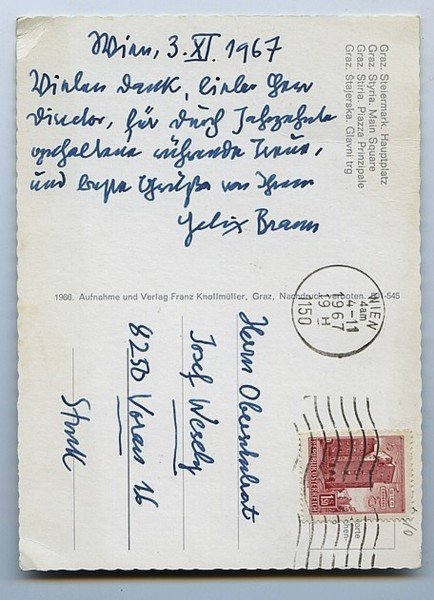 Wien, 3. XI. 1967
Vielen Dank, lieber Herr
Director, für durch Jahrzehnte
gehaltene rührende Treue,
und beste Grüße von Ihrem
Felix Braun
Graz. Steiermark. Hauptplatz
Graz. Styria. Main Square
Graz. Stiria. Piazza Prinzipale
Graz. Štajerska. Glavni trg
1966. Aufnahme und Verlag Franz Knollmüller, Graz, Nachdruck verboten. -545
WIEN
4-11
1967
19 H
1150
Herrn Oberschulrat
Josef Wesely
8250 Vorau 16
Stmk
REPUBLIK ÖSTERREICH
1.50